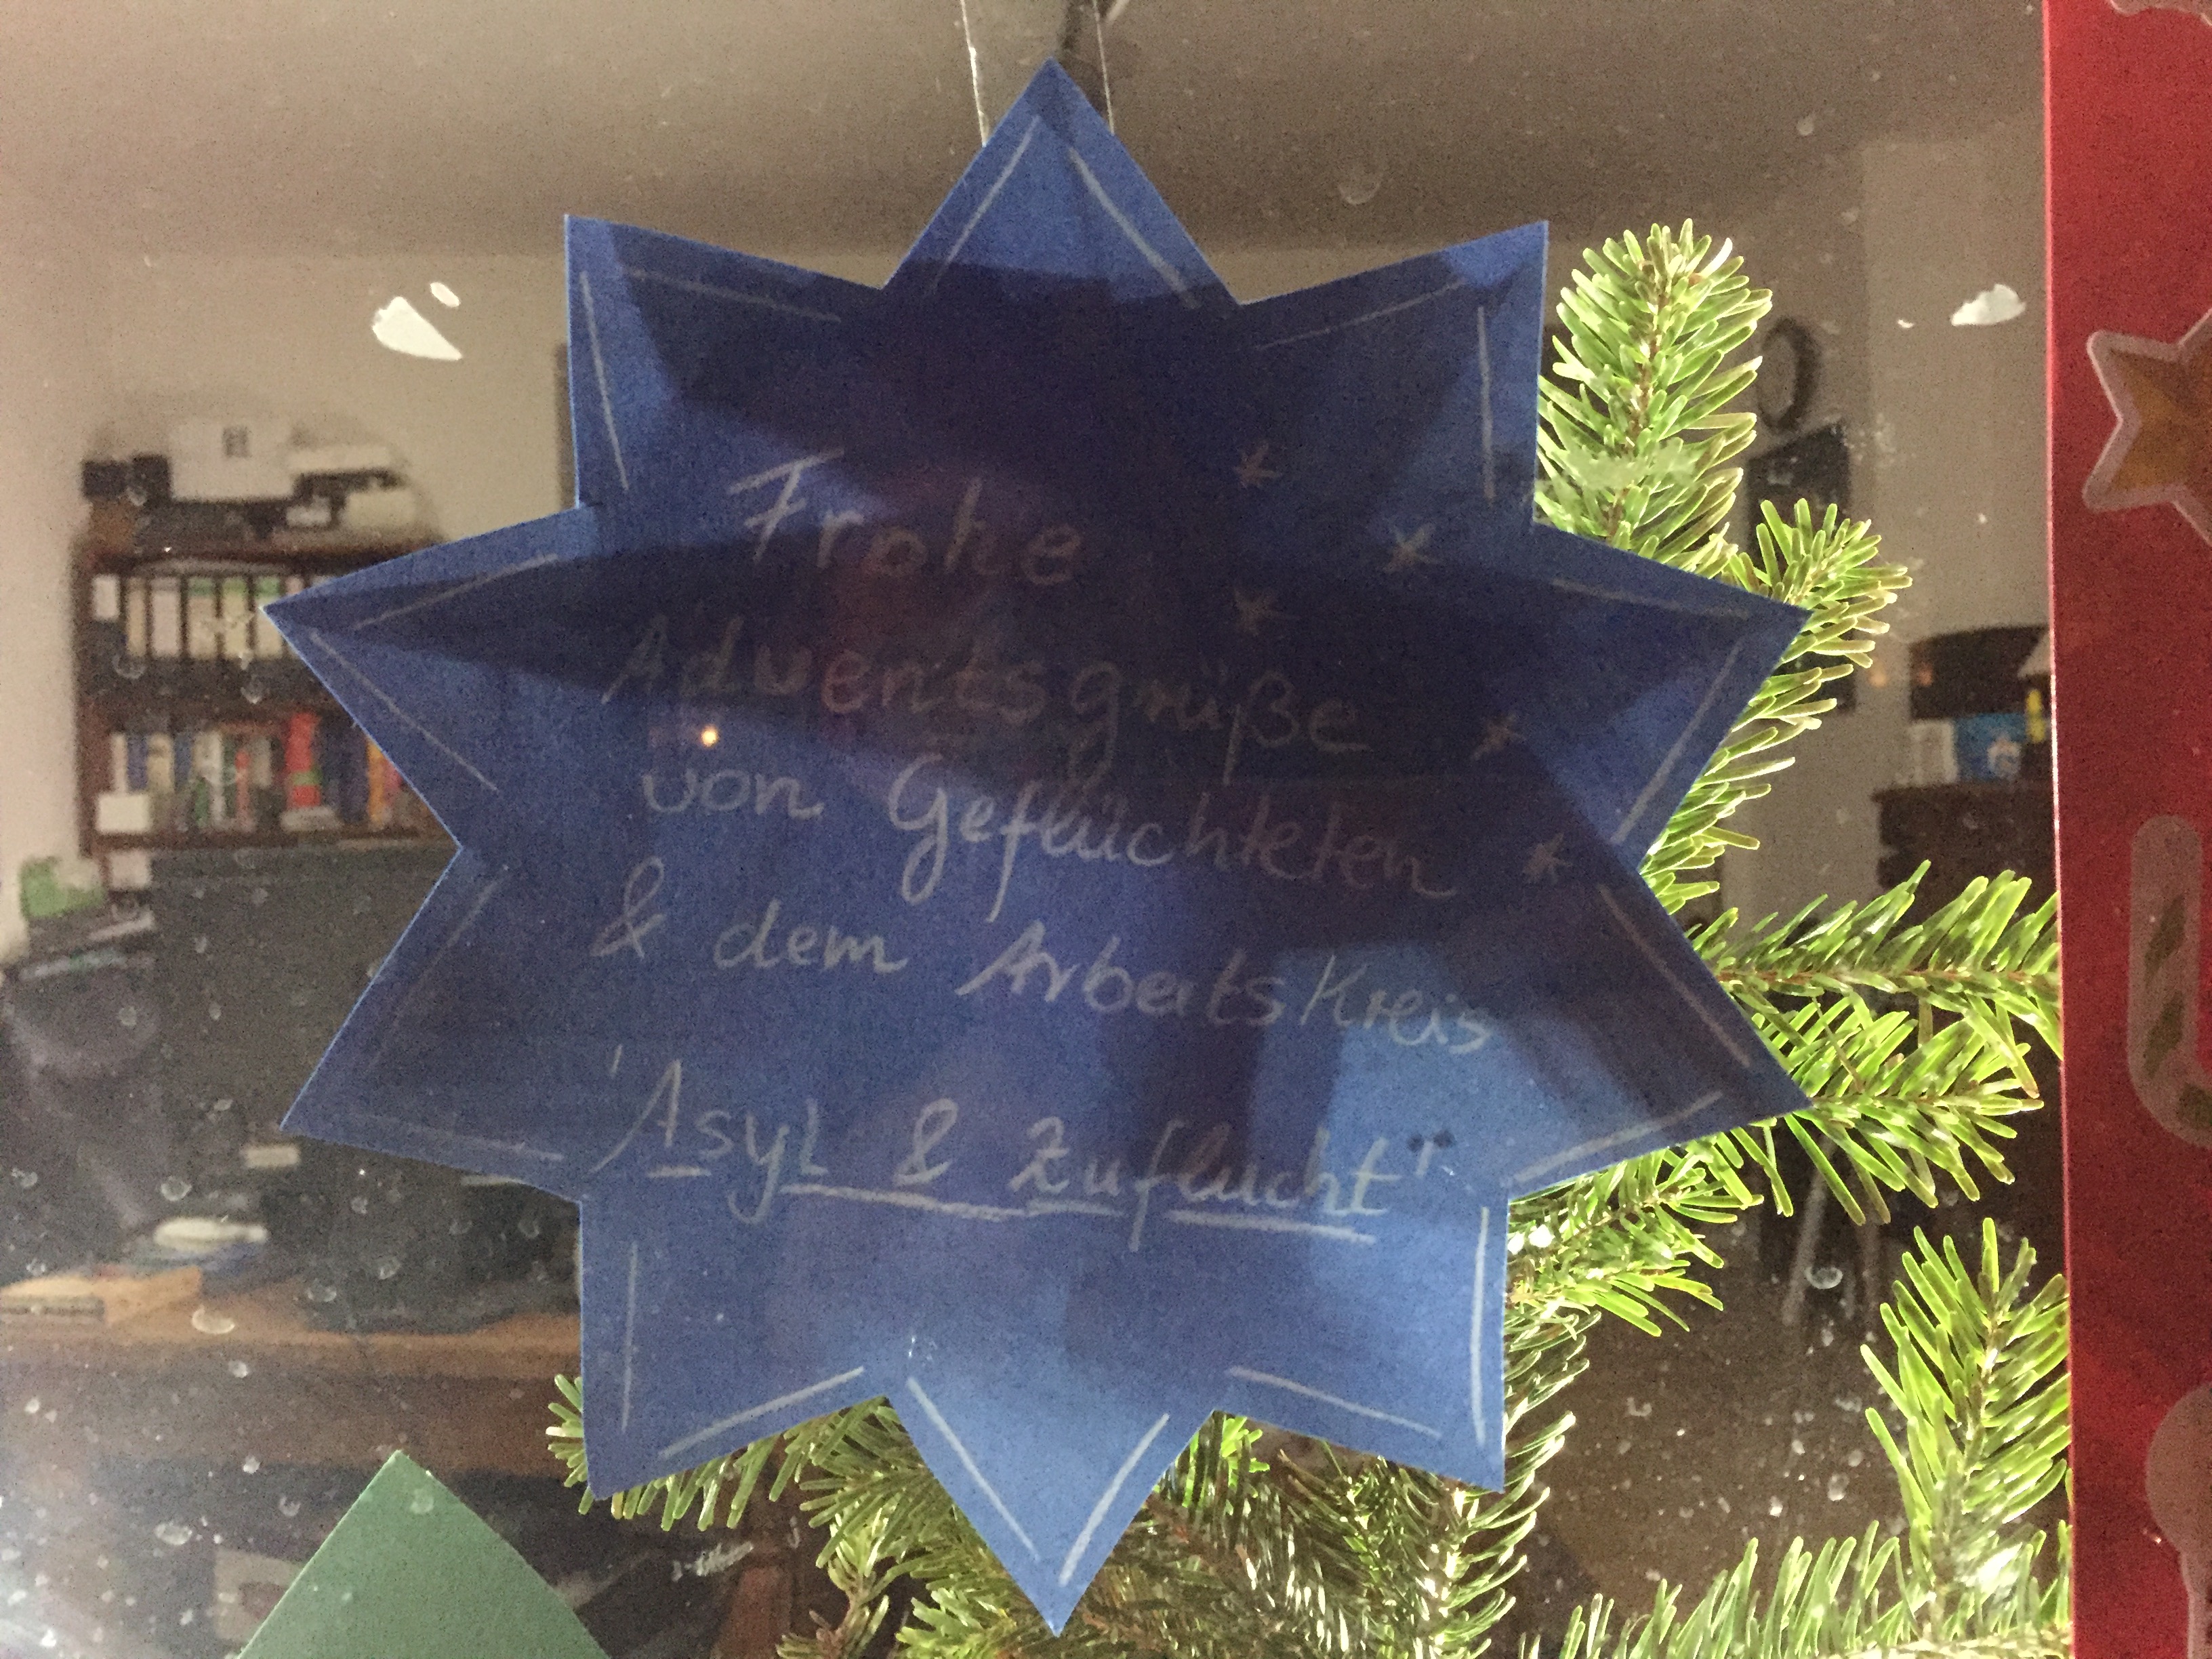 Frohe
Adventsgrüße
von Geflüchteten
& dem Arbeitskreis
"Asyl & Zuflucht"